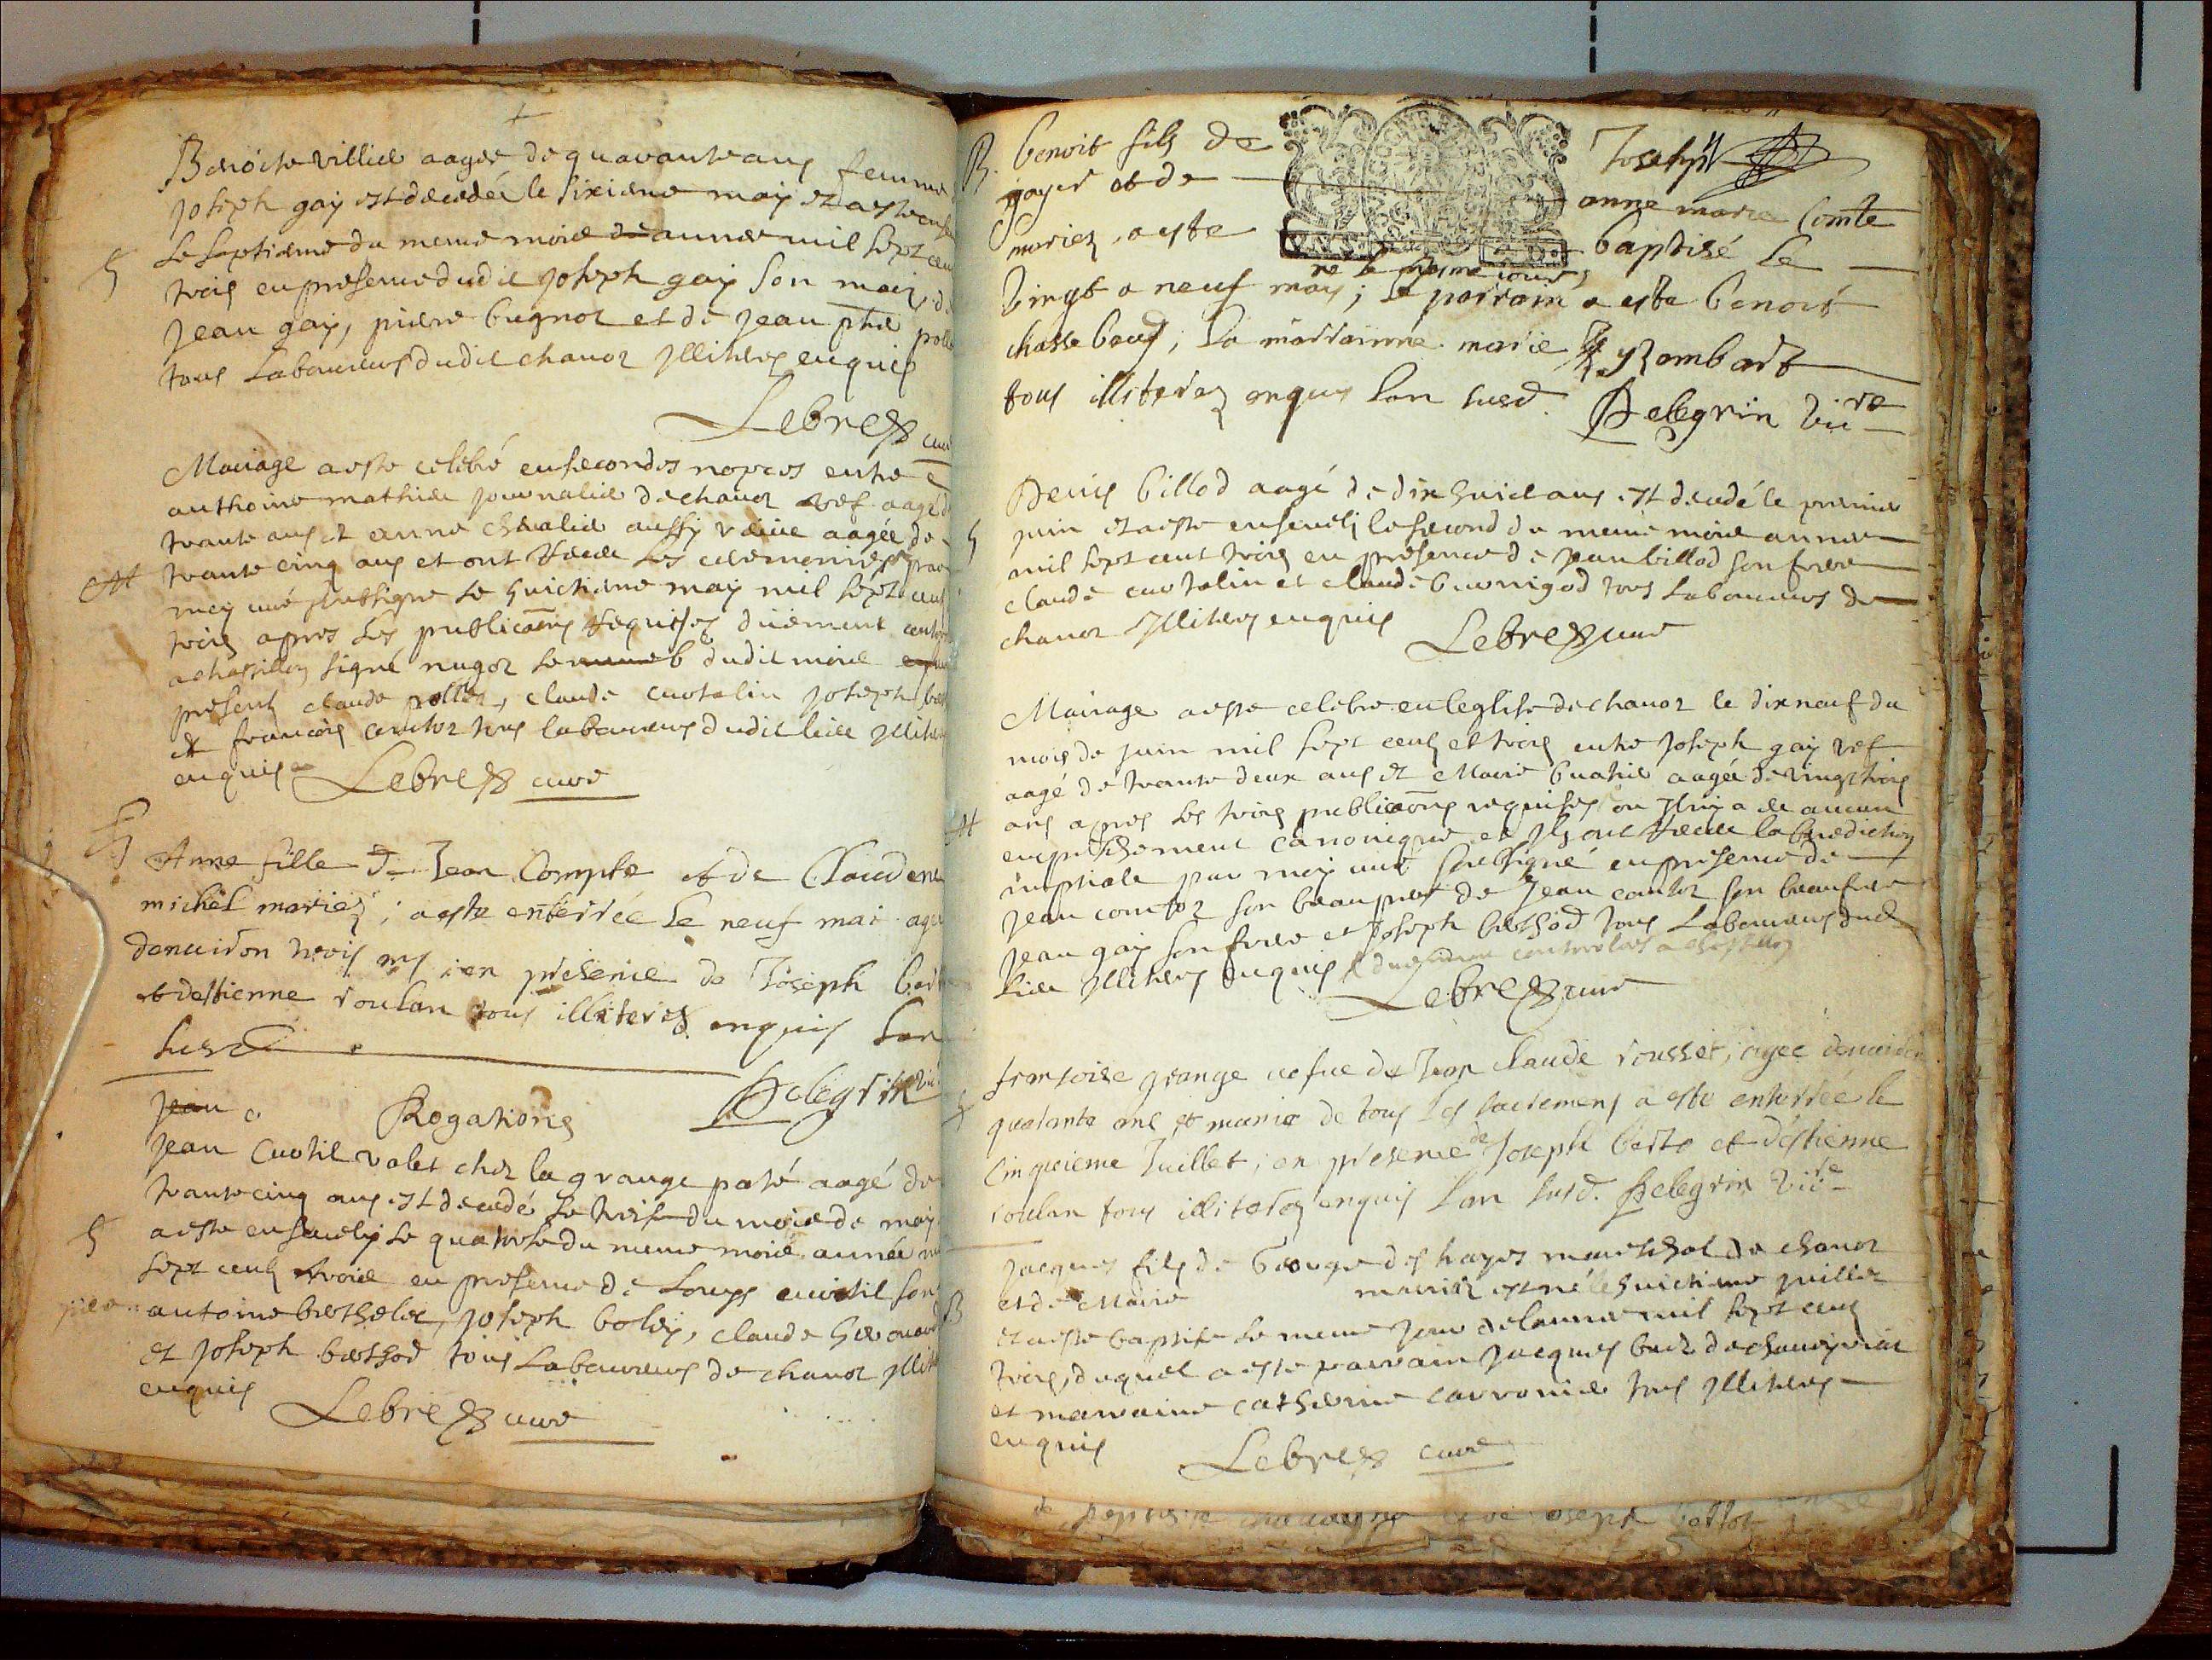 Benoite villier aagée de quarante ans femme
Joseph gay est decedée le sixieme may et a esté
S Le septieme du meme mois année mil sept cen
trois en presence dudit Joseph gay son mary, de
Jean gay, pierre bugnot et de Jean
tous Laboureurs dudit chanoz Illiteres enquis
Lebreg curé
Mariage a esté celebré en secondes nopces entre
anthoine mathieu journalier de chanoz vef aagé de
trante ans et anne chevalier aussy veuve aagée de
M trante cinq ans et ont receu les ceremonies par
moy curé soubsigne le huictieme may mil sept cens
trois apres les publicaons requises düement
a chastillon signé nugoz le 6 dudit mois
presents claude pollet, claude curtelin joseph
et francois contoz tous laboureurs dudit lieu Illiteres
enquis Lebreg curé
S
Anne fille de Jean Compte et de Claudene
michel mariez ; a esté enterrée le neuf mai agee
denviron trois ans ; en presence de Joseph bert
et destienne roulan tous illiterez enquis Lan
susd. Pelegrin vic
Jean Rogations
Jean Curtil valet chez la grange paté aagé de
trante cinq ans est decedé le treise du mois de may
S a esté ensevely le quatorse du meme mois année mil
sept cens trois en presence de Louys curtil son
antoine berthelet, joseph boley, claude
et joseph berthod tous Laboureurs de chanoz Illit
enquis
Lebreg curé
B. benoit fils de Joseph
goyer et de anne marie Comte
mariez, a este baptisé Le
né le mesme jour
vingt a neuf may ; le parrain a esté benoit
chasse boeuf ; La marrainne marie Rombart
tous illiterez enquis Lan susd. Pelegrin vicre
S Denis billod aagé de dix huict ans est decedé le premier
juin et a esté ensevely le second du meme mois année
mil sept cent trois en presence de Jean billod son frere
claude curtelin et claude buronigod tous Laboureurs de
chanoz Illiteres enquis
Lebreg curé
Mariage a esté celebré en leglise de chanoz le dix neuf du
mois de juin mil sept cens et trois entre Joseph gay vef
aagé de trante deux ans et Marie aagée de vingt trois
M ans apres les trois publicaons requises ou Il ny a eu aucun
empeschement canonique et Ils ont receu la benediction
nuptiale par moy curé soubsigné en presence de
Jean contoz son beaupere de Jean contoz son beaufrere
Jean gay son frere et Joseph berthod tous Laboureurs dud
lieu Illiteres enquis controlees a chastillon
Lebreg curé
S francoise grange vefve de Jean claude rousset ; agee denviron
quarante ans et munie de tous les sacremens a esté enterrée le
Cinquieme Juillet ; en presence de Joseph berto et destienne
roulan tous illiterez enquis Lan susd. Pelegrin vicre
jacques fils de George des hayes mareschal de chanoz
B et de Marie mariez est né le huictieme juillet
et a esté baptisé le meme jour de lannée mil sept cens
trois, duquel a esté parrain jacques de
et marraine catherine carronier tous Illiteres
enquis
Lebreg curé